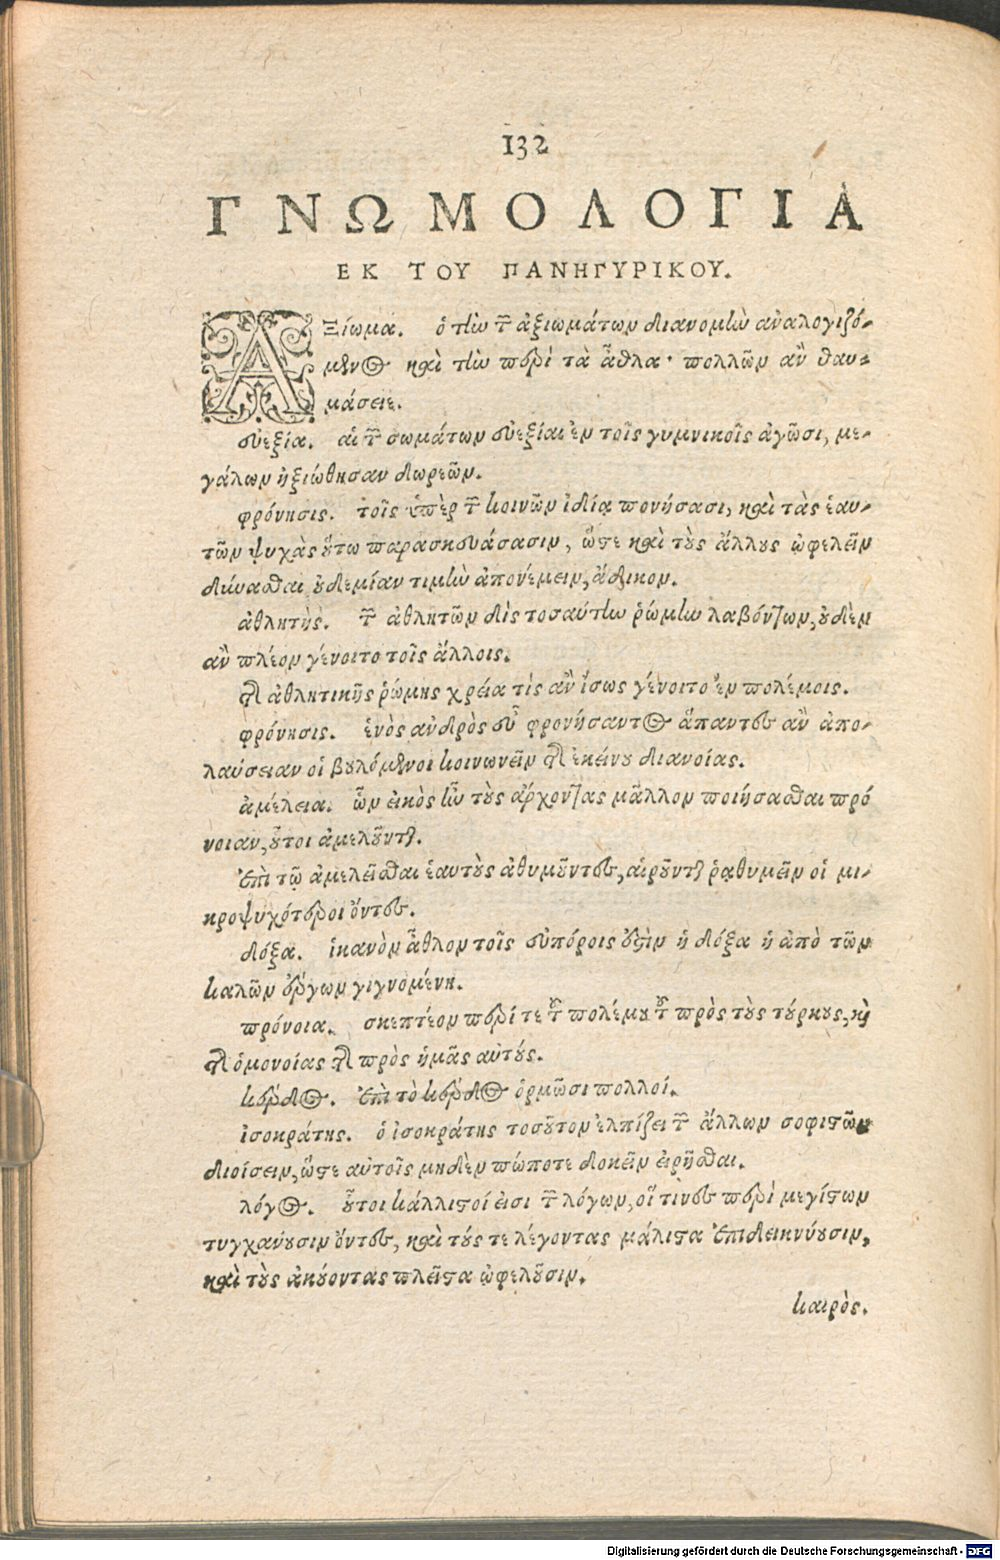 132
ΓΝΩΜΟΛΟΓΙΑ
ΕΚ ΤΟΥ ΠΑΝΗΓΥΡΙΚΟΥ.
ΑΞίωμα. ὁ τὴν τῶν ἀξιωμάτων διανομὴν ἀναλογιζό-
μενος καὶ τὴν περὶ τὰ ἆθλα· πολλῶν ἂν θαυ-
μάσειε.
εὐεξία. αἱ τῶν σωμάτων εὐεξίαι ἐν τοῖς γυμνικοῖς ἀγῶσι, με-
γάλων ἠξιώθησαν δωρεῶν.
φρόνησις. τοῖς ὑπὲρ τῶν κοινῶν ἰδίᾳ πονήσασι, καὶ τὰς ἑαυ-
τῶν ψυχὰς οὕτω παρασκευάσασιν, ὥστε καὶ τοὺς ἄλλους ὠφελεῖν
δύνασθαι οὐδεμίαν τιμὴν ἀπονέμειν, ἄδικον.
ἀθλητής. τῶν ἀθλητῶν δὶς τοσαύτην ῥώμην λαβόντων, οὐδὲν
ἂν πλέον γένοιτο τοῖς ἄλλοις.
τῆς ἀθλητικῆς ῥώμης χρεία τὶς ἂν ἴσως γένοιτο ἐν πολέμοις.
φρόνησις. ἑνὸς ἀνδρὸς εὖ φρονήσαντος ἅπαντες ἂν ἀπο-
λαύσειαν οἱ βουλόμενοι κοινωνεῖν τῆς ἐκείνου διανοίας.
ἀμέλεια. ὧν εἰκὸς ἦν τοὺς ἄρχοντας μᾶλλον ποιήσασθαι πρό
νοιαν, οὗτοι ἀμελοῦνται.
ἐπὶ τῷ ἀμελεῖσθαι ἑαυτοὺς ἀθυμοῦντες, αἱροῦνται ῥᾳθυμεῖν οἱ μι-
κροψυχότεροι ὄντες.
δόξα. ἱκανὸν ἆθλον τοῖς εὐπόροις ἐστὶν ἡ δόξα ἡ ἀπὸ τῶν
καλῶν ἔργων γιγνομένη.
πρόνοια. σκεπτέον περί τε τοῦ πολέμου τοῦ πρὸς τοὺς τούρκους, καὶ
τῆς ὁμονοίας τῆς πρὸς ἡμᾶς αὐτούς.
κέρδος. ἐπὶ τὸ κέρδος ὁρμῶσι πολλοί.
ἰσοκράτης. ὁ ἰσοκράτης τοσοῦτον ἐλπίζει τῶν ἄλλων σοφιστῶν
διοίσειν, ὥστε αὐτοῖς μηδὲν πώποτε δοκεῖν εἰρῆσθαι.
λόγος. οὗτοι κάλλιστοί εἰσι τῶν λόγων, οἵ τινες περὶ μεγίστων
τυγχάνουσιν ὄντες, καὶ τούς τε λέγοντας μάλιστα ἐπιδεικνύουσιν,
καὶ τοὺς ἀκούοντας πλεῖστα ὠφελοῦσιν.
καιρὸς.
Digitalisierung gefördert durch die Deutsche Forschungsgemeinschaft - DFG